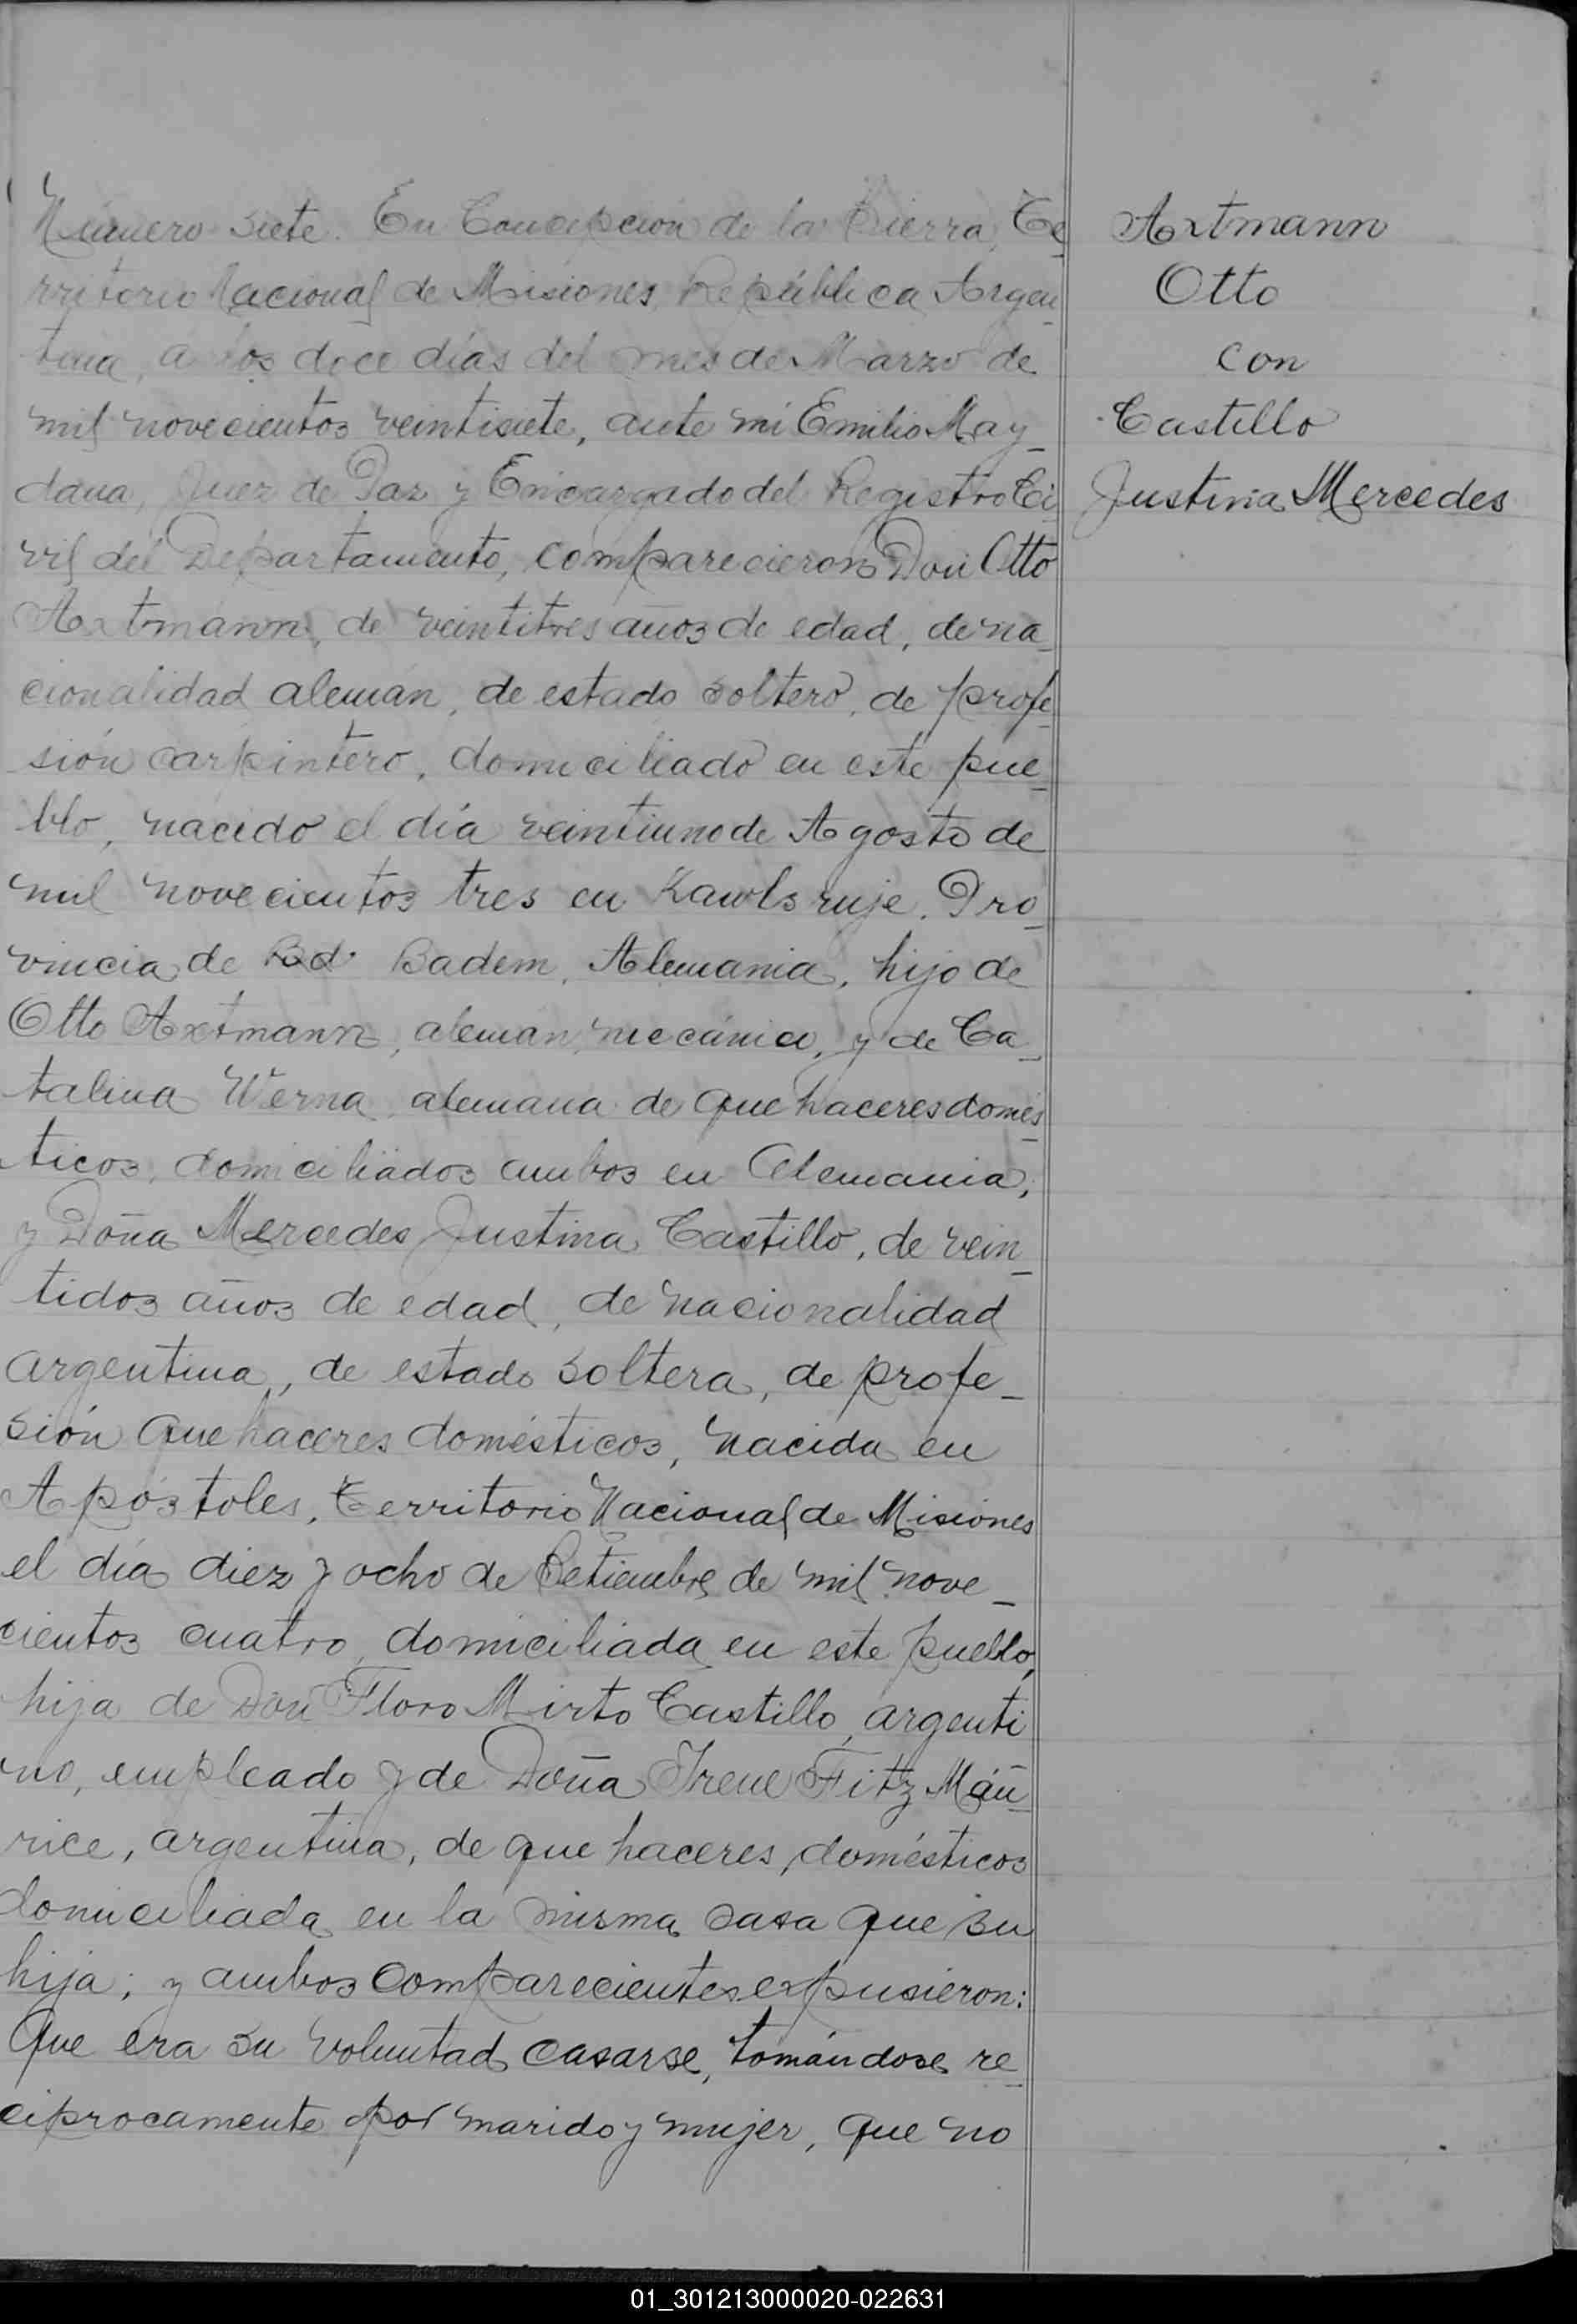 Número siete. En Concepción de la Sierra, Te
rritorio Nacional de Misiones, República Argen
tina, a los doce días del mes de Marzo de
mil novecientos veintisiete, ante mi Emilio May_
dana, Juez de Paz y Encargado del Registro Ci
vil del Departamento, comparecieron Don Otto
Axtmann, de veintitres años de edad, de na_
cionalidad alemán, de estado soltero, de profe
sión carpintero, domiciliado en este pue_
blo, nacido el día veintiuno de Agosto de
mil novecientos tres en Kawlsruje, Pro_
vincia de Bd Badem, Alemania, hijo de
Otto Axtmann, alemán, mecánico, y de Ca_
talina Werna, alemana de que haceres domés
ticos, domiciliados ambos en Alemania;
y Doña Mercedes Justina Castillo, de vein_
tidos años de edad, de nacionalidad
argentina, de estado soltera, de profe_
sión que haceres domésticos, nacida en
Apóstoles, Territorio Nacional de Misiones
el día diez y ocho de Setiembre de mil nove_
cientos cuatro, domiciliada en este pueblo,
hija de Don Floro Mirto Castillo, argenti
no, empleado y de Doña Irene Fitz Máu_
rice, argentina, de que haceres domésticos
domiciliada en la misma casa que su
hija; y ambos comparecientes expusieron:
Que era su voluntad casarse, tomándose re_
ciprocamente por marido y mujer, que no
Axtmann
Otto
con
Castillo
Justina Mercedes
01_301213000020-022631